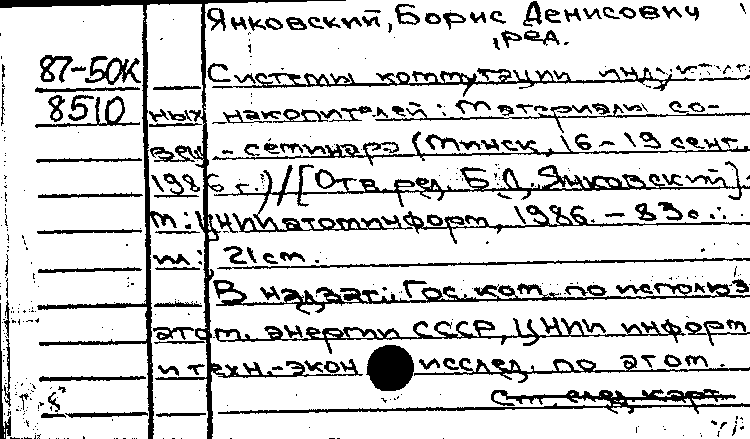 Янковский, Борис Денисович
, ред.
87-50К Системы коммутации индуктив
8510 ных накопителей: Материалы со-
вещ.-семинара (Минск, 16-19 сент.
1986 г.)//[Отв. ред. Б.Д. Янковский].-
М.: ЦНИИатоминформ, 1986. - 83 с.:
ил.; 21 см.
В надзаг.: Гос. ком. по использ
атом. энергии СССР, ЦНИИ информ
и техн.-экон исслед. по атом.
См. след. карт.
8